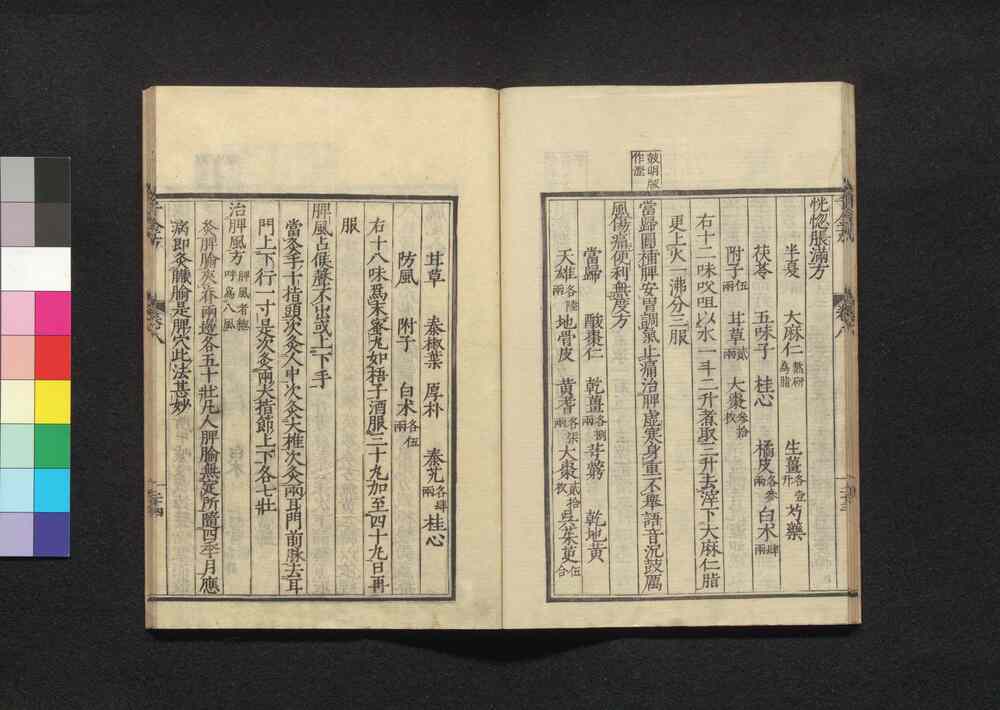 恍惚脹滿方
半夏 大麻仁熬研爲脂 生薑各壹升 芍藥
茯苓 五味子 桂心 橘皮各參兩 白朮肆兩
附子伍兩 甘草貳兩 大棗參拾枚
右十二味㕮咀以水一斗二升煮取三升去滓下大麻仁脂
更上火一沸分三服
當歸圓補脾安胃調氣止痛治脾虛寒身重不舉語音沉鼓厲
風傷痛便利無度方
當歸 酸棗仁 乾薑各捌兩 芎藭 乾地黃
天雄各陸兩 地骨皮 黃耆各柒兩 大棗貳拾枚 吳茱萸伍合
甘草 秦椒葉 厚朴 秦艽各肆兩 桂心
防風 附子 白朮各伍兩
右十八味爲末蜜丸如梧子酒服三十丸加至四十丸日再
服
脾風占候聲不出或上下手
當灸手十指頭次灸人中次灸大椎次灸兩耳門前脉去耳
門上下行一寸是次灸兩大指節上下各七壯
治脾風方脾風者總呼爲八風
灸脾腧夾脊兩邊各五十壯凡人脾腧無定所隨四季月應
病即灸臟腧是脾穴此法甚妙